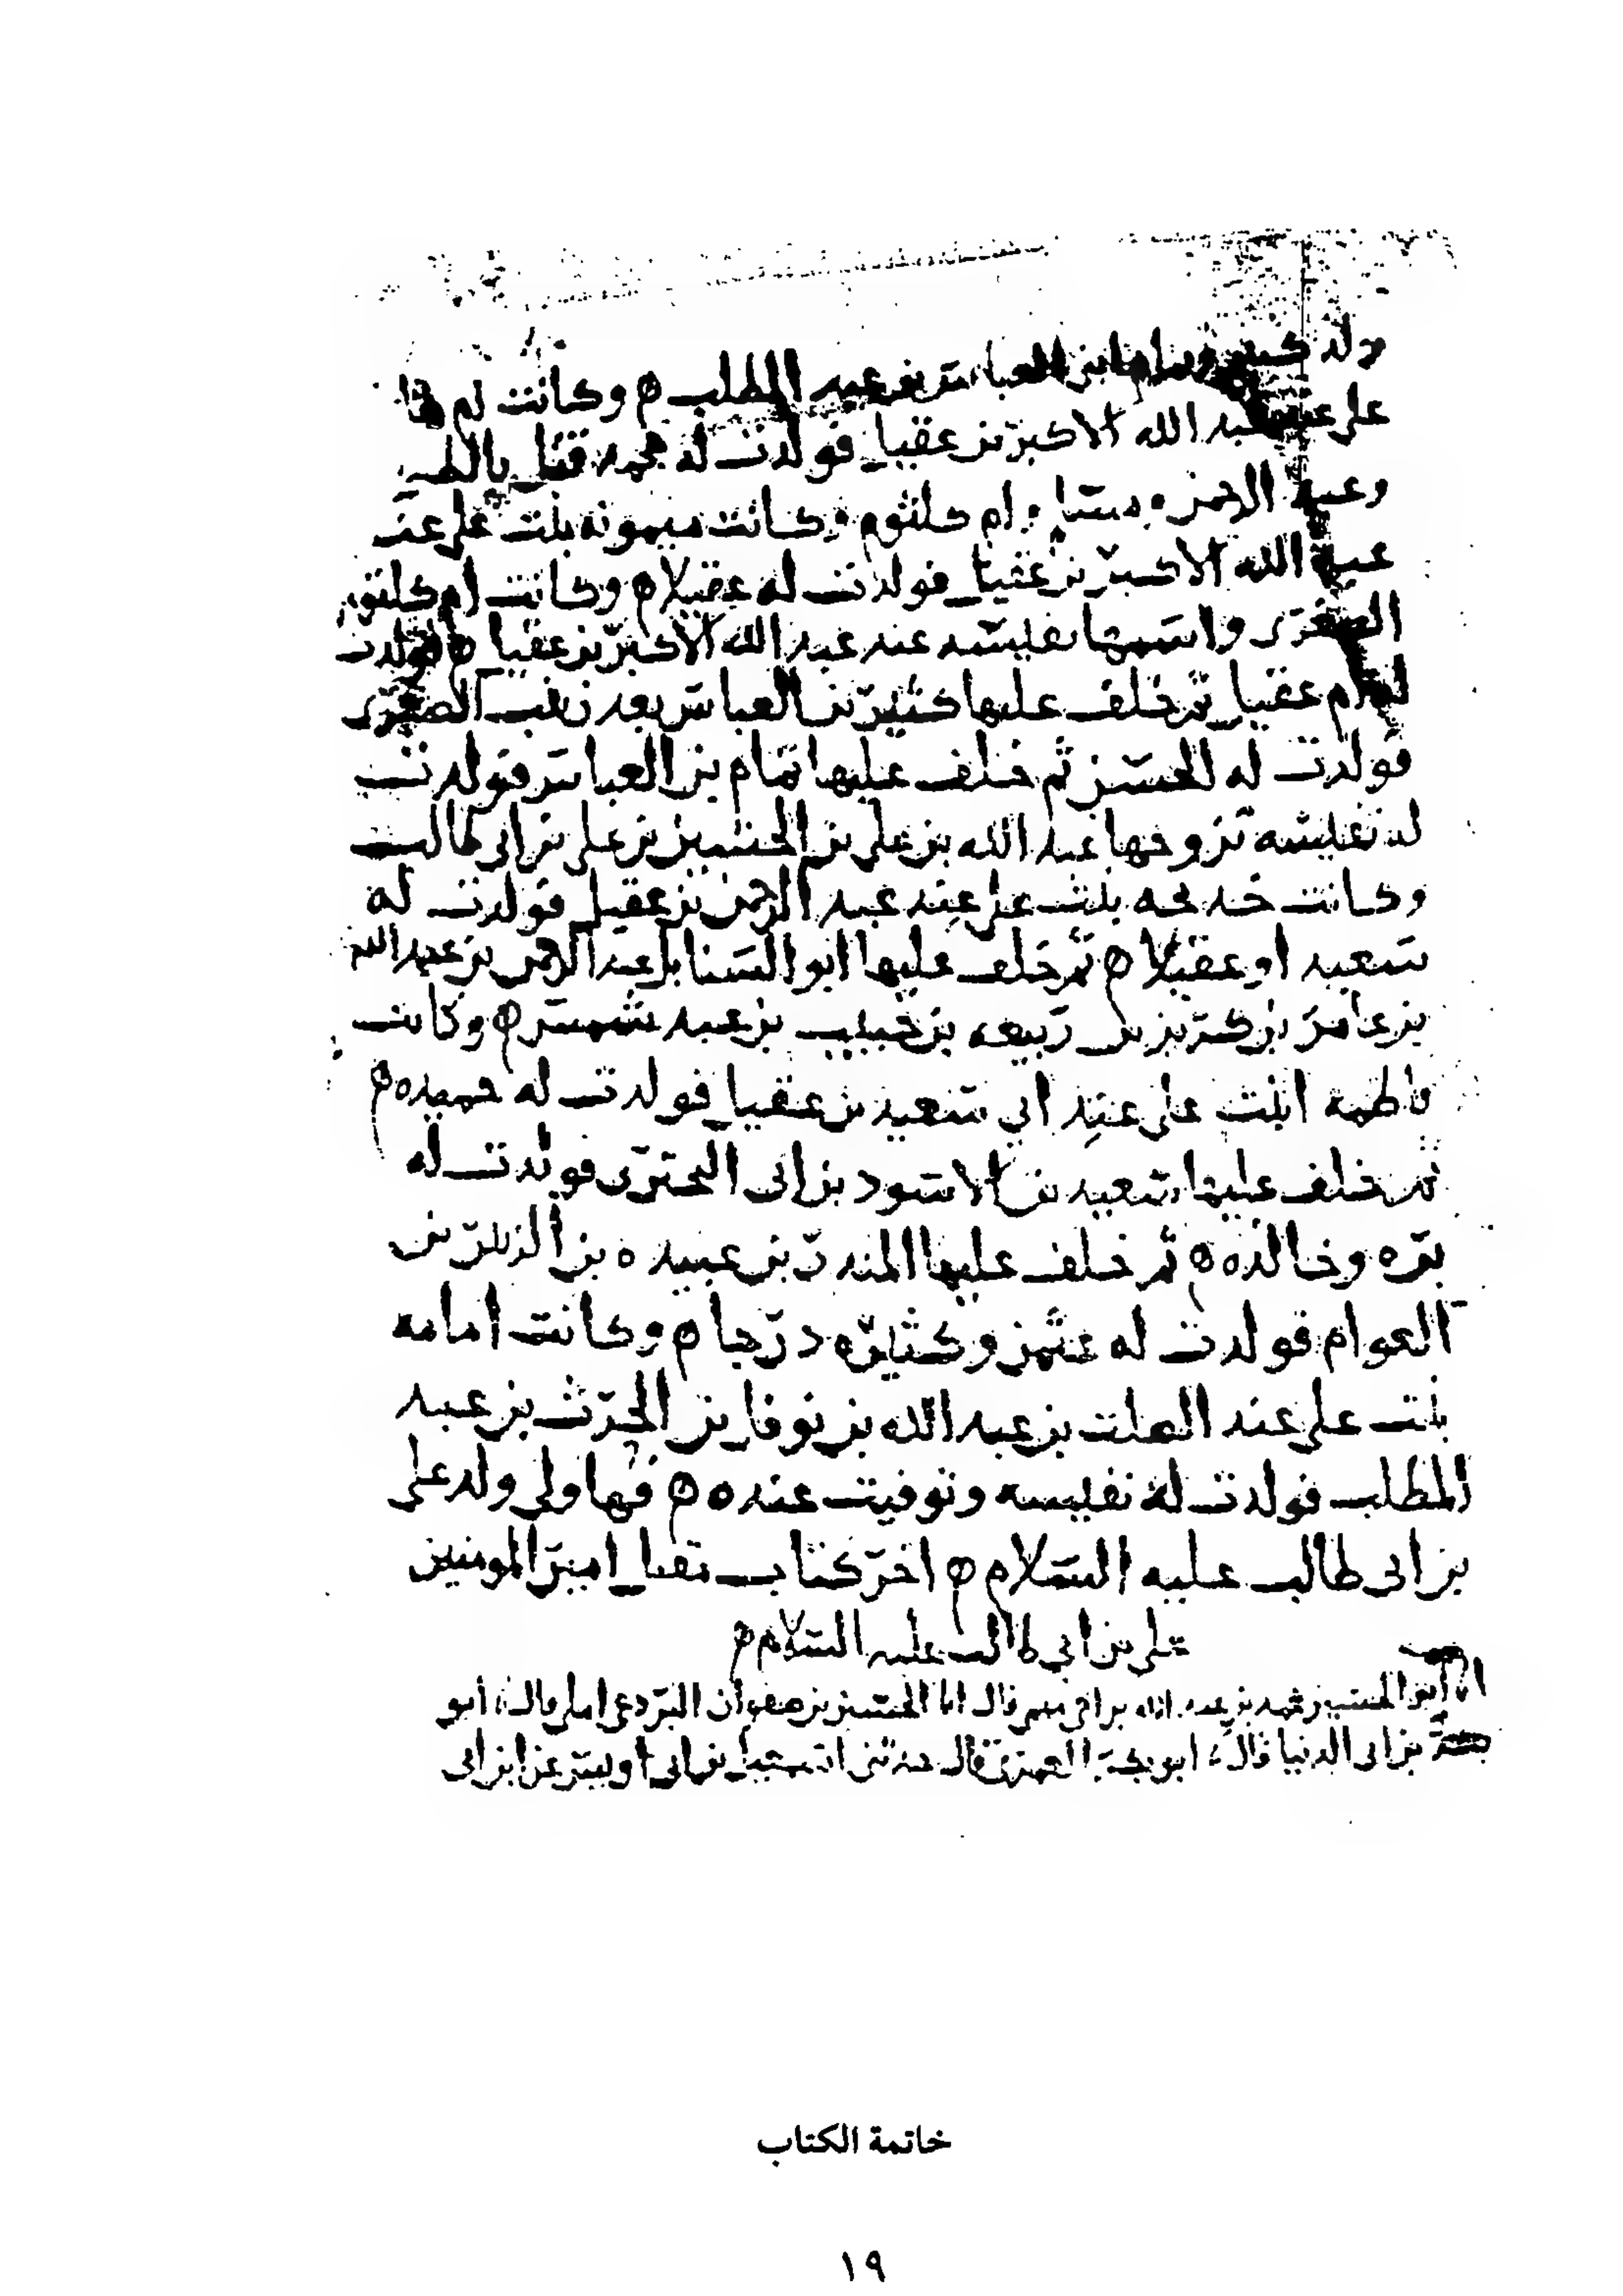 ولد كثير وتمام ابنا العباس بن عبد المطلب وكانت ام هانئ
علي عند عبد الله الاكبر بن عقيل فولدت له محمد قتل بالطف
وعبد الرحمن ومسلما وام كلثوم وكانت ميمونه بنت علي عند
عبد الله الاكبر بن عقيل فولدت له عقيلا وكانت ام كلثوم
الصغرى واسمها نفيسه عند عبد الله الاكبر بن عقيل فولدت
له ام عقيل ثم خلف عليها كثير بن العباس بعد زينب الصغرى
فولدت له الحسن ثم خلف عليها تمام بن العباس فولدت
له نفيسه تزوجها عبد الله بن علي بن الحسين بن علي بن ابي طالب
وكانت خديجه بنت علي عند عبد الرحمن بن عقيل فولدت له
سعيد او عقيلا ثم خلف عليها ابو السنابل عبد الرحمن بن عبد الله
بن عامر بن كريز بن ربيعه بن حبيب بن عبد شمس وكانت
فاطمه ابنت علي عند ابي سعيد بن عقيل فولدت له حميده
ثم خلف عليها سعيد بن الاسود بن ابي البحتري فولدت له
بره وخالده ثم خلف عليها المنذر بن عبيده بن الزبير بن
العوام فولدت له عثمن وكثيره درجا وكانت امامه
بنت علي عند الصلت بن عبد الله بن نوفل بن الحرث بن عبد
المطلب فولدت له نفيسه وتوفيت عنده فهاولى ولد علي
بن ابي طالب عليه السلام اخر كتاب مقتل امير المومنين
علي بن ابي طالب عليه السلام
انا ابو الحسين محمد بن عبد الله بن اخي ميمي قال انا الحسين بن صفوان البردعي املى قال ابو
بكر بن ابي الدنيا قال ابو بكر العمري قال حدثني اسمعيل بن ابي اويس عن ابن ابي
خاتمة الكتاب
١٩